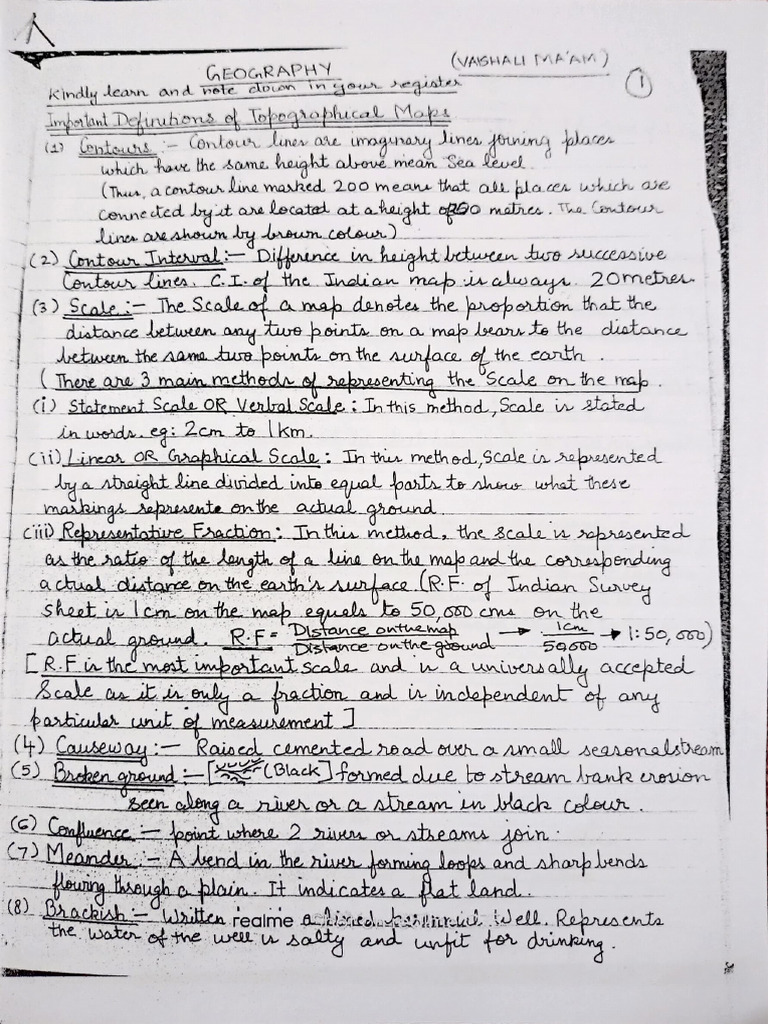 (VAISHALI MA'AM)
GEOGRAPHY
1
Kindly learn and note down in your register
Important Definitions of Topographical Maps
(1) Contours :- Contour lines are imaginary lines joining places
which have the same height above mean Sea level.
(Thus, a contour line marked 200 means that all places which are
connected by it are located at a height of 200 metres. The Contour
lines are shown by brown colour)
(2) Contour Interval:- Difference in height between two successive
Contour lines. C.I. of the Indian map is always 20 metres.
(3) Scale:- The Scale of a map denotes the proportion that the
distance between any two points on a map bears to the distance
between the same two points on the surface of the earth.
(There are 3 main methods of representing the Scale on the map.
(i) Statement Scale OR Verbal Scale: In this method, Scale is stated
in words. eg: 2cm to 1km.
(ii) Linear OR Graphical Scale: In this method, Scale is represented
by a streight line divided into equal parts to show what these
markings represente on the actual ground.
(iii) Representative Fraction: In this method, the scale is represented
as the ratio of the length of a line on the map and the corresponding
actual distance on the earth's surface (R.F. of Indian Survey
sheet is 1cm on the map equals to 50,000 cms on the
actual ground. R.F = Distance on the map / Distance on the ground → 1cm / 50,000 → 1:50,000)
[R.F is the most important scale and is a universally accepted
Scale as it is only a fraction and is independent of any
particular unit of measurement]
(4) Causeway:- Raised cemented road over a small seasonal stream
(5) Broken ground:- [(Black] formed due to stream bank erosion
seen along a river or a stream in black colour.
(6) Confluence:- point where 2 rivers or streams join.
(7) Meander:- A bend in the river forming loops and sharp bends
flowing through a plain. It indicates a flat land.
(8) Brackish:- Written realme a lined perennial Well. Represents
the water of the well is salty and unfit for drinking.